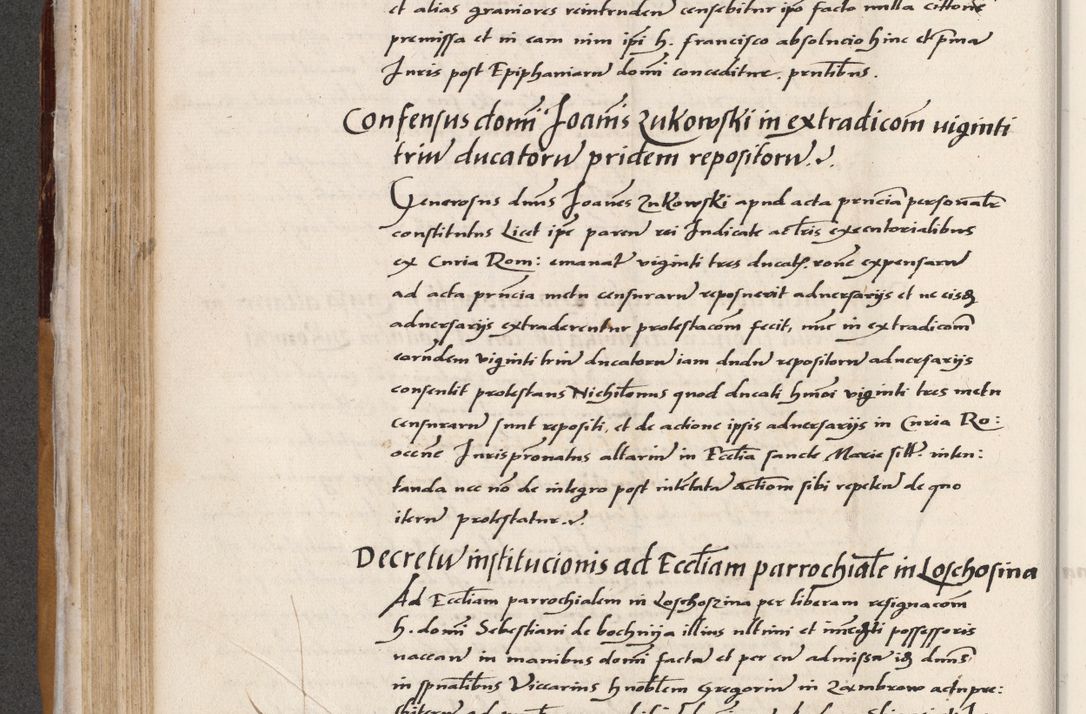 et alias graniores reintruden censebitur ipo facto nulla cittone
premissa et in eam nim ipi h. francisco absolucio hinc et prima
Juris post Epiphaniarum domi conceditur. prntibus.
Consensus domi Joanis Zukowski in extradicom viginti
trium ducatorum pridem repositorum.
Generosus dnus Joanes Zukowski apud acta prncia personaliter
constitutus Licet ipe paren rei Iudicate ac lris executorialibus
ex Curia Rom: emanat viginti tres ducat. rone expensarum
ad acta prncia metu censurarum reposuerit adversarijs et ne eisdem
adversarijs extraderentur protestacom fecit, nunc in extradicom
earundem viginti trium ducatorum iam dudum repositorum adversarijs
consentit protestans Nichilominus quod ducati hmoi viginti tres metu
censurarum sunt repositi, et de actione ipsis adversarijs in Curia Ro:
occne Jurispronatus altarium in Ecclia sancte Marie sitt. inten:
tanda nec no de integro post intetata actiom sibi repeten de quo
iterum protestatur.
Decretum institucionis ad Eccliam parrochiale in Loschosina
Ad Eccliam parrochialem in Loschoszina per liberam resignacom
h. domi Sebestiani de bochnija illius ultimi et imediti possessoris
vacean in manibus domi facta et per eum admissa idem dnus
in spualibus Vicarius h noblem Gregorium in Zambrow actu pre: